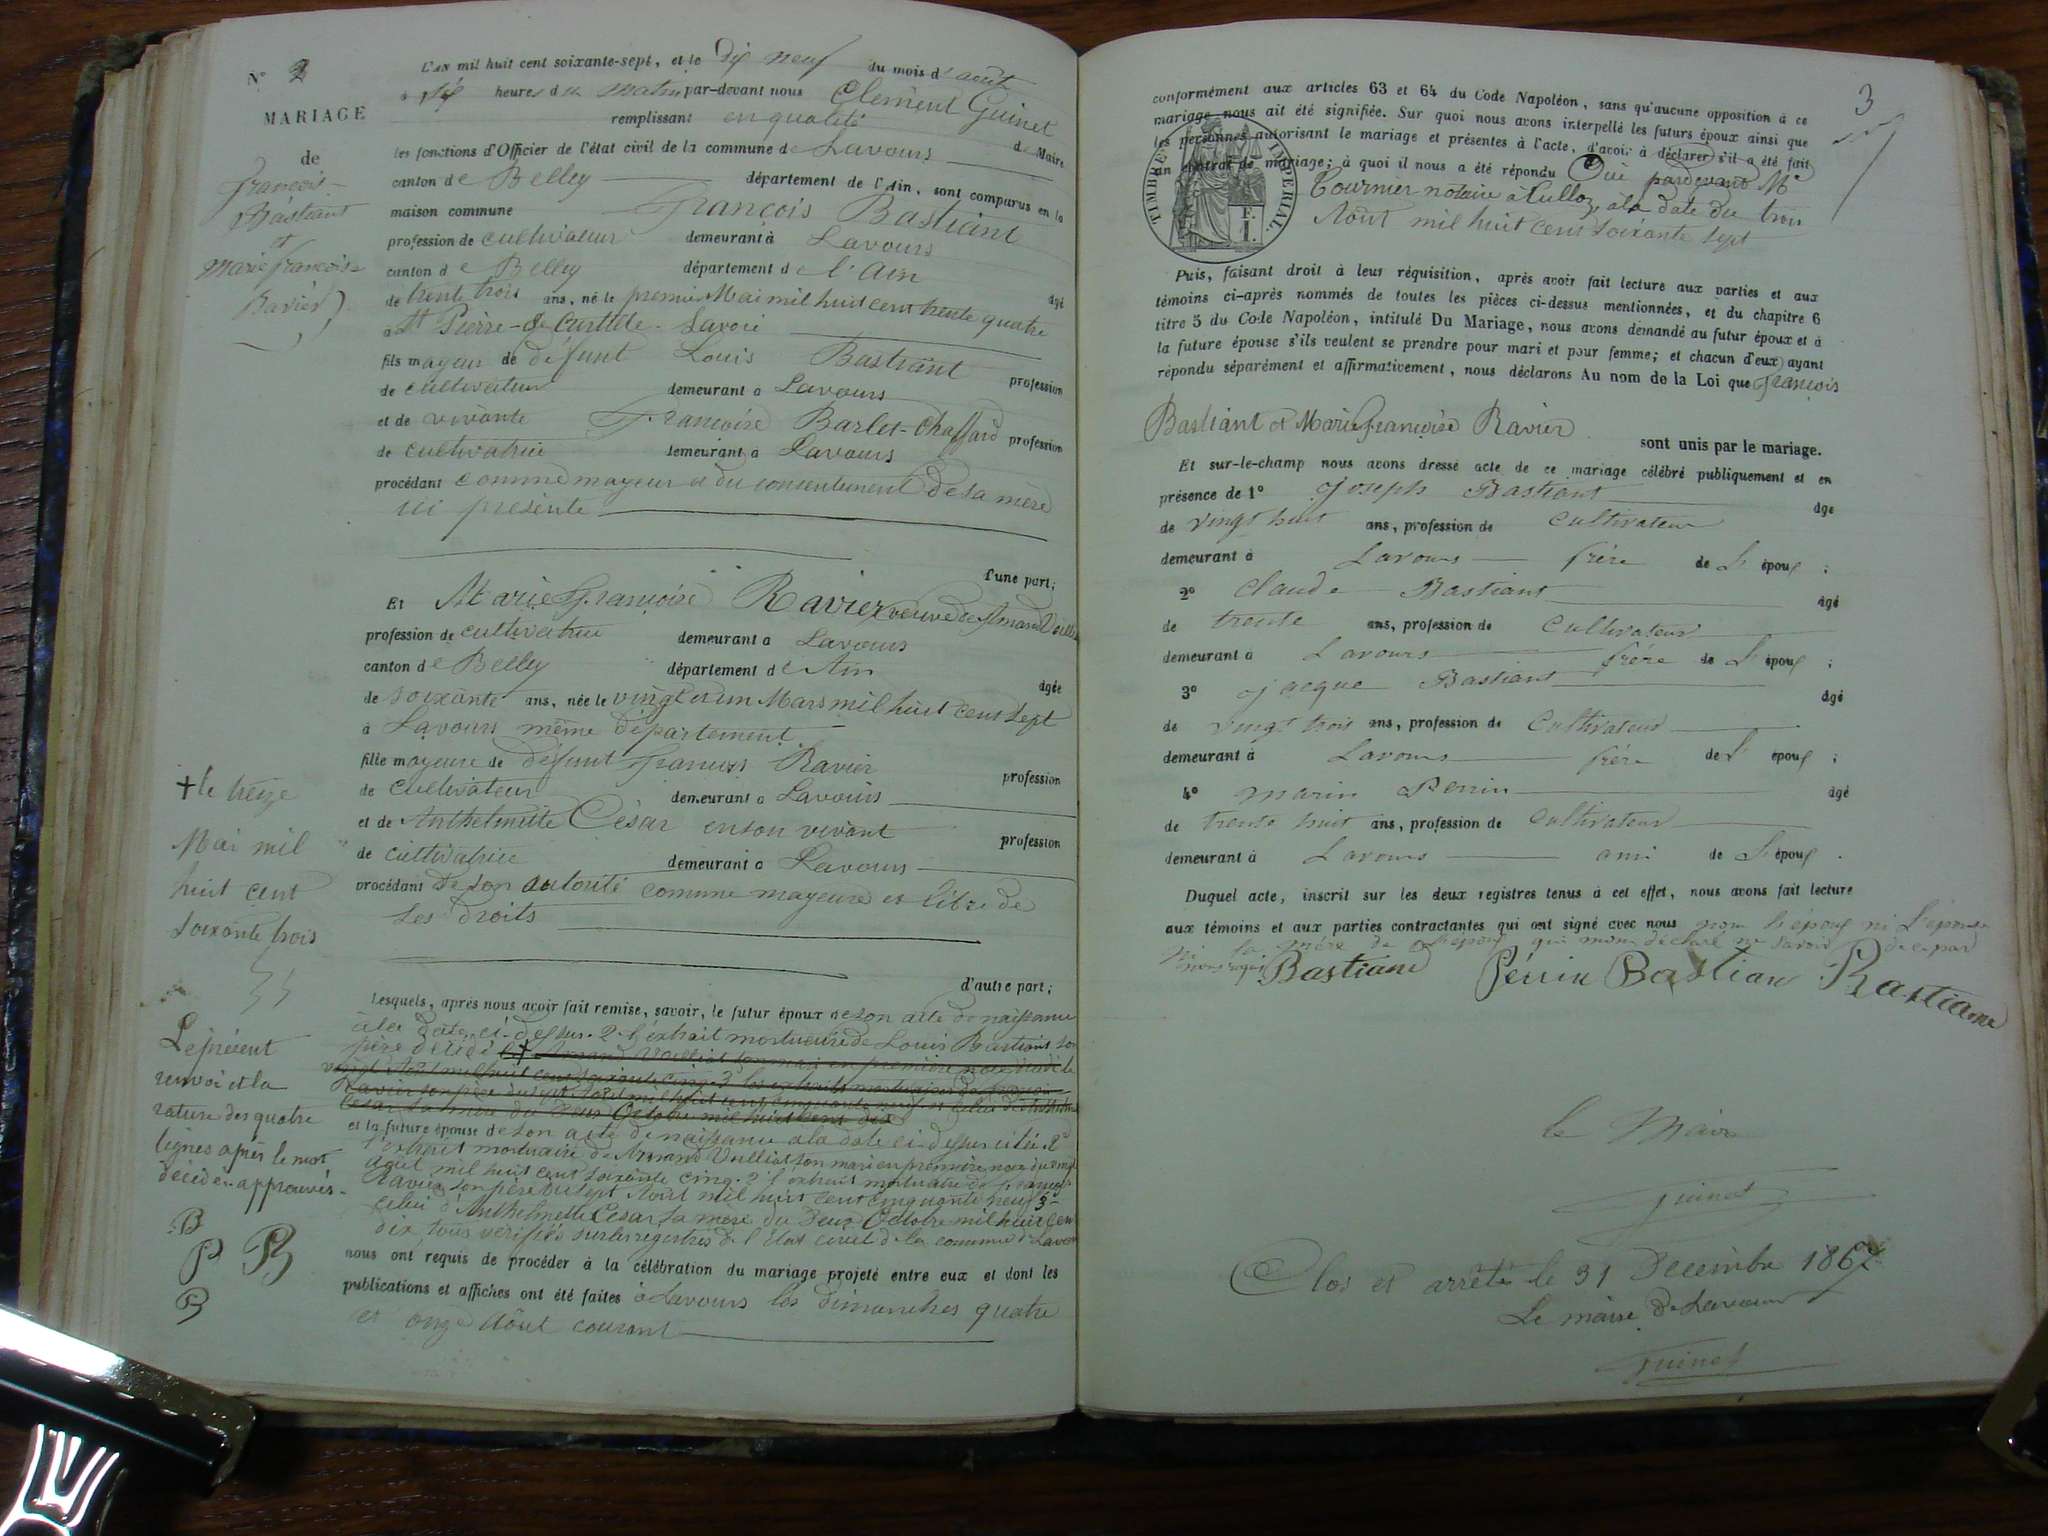 N° 2
MARIAGE
de
François
Bastiant
et
Marie françoise
Ravier
L'an mil huit cent soixante-sept, et le Dix neuf du mois d'août
à dix heures du matin par-devant nous Clément Guinet
remplissant en qualité de Maire
les fonctions d'Officier de l'état civil de la commune de Lavours
canton de Belley département de l'Ain, sont comparus en la
maison commune François Bastiant
profession de cultivateur demeurant à Lavours
canton de Belley département de l'Ain
âgé
de trente trois ans, né le premier Mai mil huit cent trente quatre
à St Pierre-de Curtille Savoie
fils mayeur de défunt Louis Bastiant profession
de cultivateur demeurant à Lavours
et de vivante Françoise Barlet-Chaffard profession
de cultivatrice demeurant à Lavours
procédant comme mayeur et du consentement de sa mère
ici présente
d'une part;
Et Marie Françoise Ravier veuve de Amand
profession de cultivatrice demeurant à Lavours
canton de Belley département de Ain
âgée
de soixante ans, née le vingt et un Mars mil huit cent sept
à Lavours même département
fille mayeure de défunt François Ravier profession
de cultivateur demeurant à Lavours
et de Anthelmette César en son vivant profession
de cultivatrice demeurant à Lavours
procédant de son autorité comme mayeure et libre de
ses droits
d'autre part;
+ le treize
Mai mil
huit cent
soixante trois
Lesquels, après nous avoir fait remise, savoir, le futur époux de son acte de naissance
à la date ci-dessus 2° l'extrait mortuaire de Louis Bastiant son
père décédé le +
et la future épouse de son acte de naissance à la date ci-dessus citée 2°
l'extrait mortuaire de Armand Vulliot son mari en première noce du vingt
août mil huit cent soixante cinq. 3° l'extrait mortuaire de François
Ravier son père du sept Août mil huit cent cinquante neuf
celui d'Anthelmette César sa mère du Deux Octobre mil huit cent
dix, tous vérifiés sur les registres de l'état civil de la commune de Lavours
nous ont requis de procéder à la célébration du mariage projeté entre eux et dont les
publications et affiches ont été faites à Lavours les dimanches quatre
et onze Août courant
Le présent
renvoi et la
rature des quatre
lignes après le mot
décédé approuvés
B
P B
B
3
conformément aux articles 63 et 64 du Code Napoléon, sans qu'aucune opposition à ce
mariage nous ait été signifiée. Sur quoi nous avons interpellé les futurs époux ainsi que
les personnes autorisant le mariage et présentes à l'acte, d'avoir à déclarer s'il a été fait
un contrat de mariage; à quoi il nous a été répondu Oui pardevant Me
Tournier notaire à Culloz, à la date du trois
Août mil huit cent soixante sept
TIMBRE IMPERIAL
F. I.
Puis, faisant droit à leur réquisition, après avoir fait lecture aux parties et aux
témoins ci-après nommés de toutes les pièces ci-dessus mentionnées, et du chapitre 6
titre 5 du Code Napoléon, intitulé Du Mariage, nous avons demandé au futur époux et à
la future épouse s'ils veulent se prendre pour mari et pour femme; et chacun d'eux ayant
répondu séparément et affirmativement, nous déclarons Au nom de la Loi que François
Bastiant et Marie françoise Ravier
sont unis par le mariage.
Et sur-le-champ nous avons dressé acte de ce mariage célébré publiquement et en
présence de 1° Joseph Bastiant âgé
de vingt huit ans, profession de cultivateur
demeurant à Lavours frère de l'époux ;
2° Claude Bastiant âgé
de trente ans, profession de Cultivateur
demeurant à Lavours frère de l'époux ;
3° Jacque Bastiant âgé
de vingt trois ans, profession de Cultivateur
demeurant à Lavours frère de l'époux ;
4° Marin Perrin âgé
de trente huit ans, profession de Cultivateur
demeurant à Lavours ami de l'époux .
Duquel acte, inscrit sur les deux registres tenus à cet effet, nous avons fait lecture
aux témoins et aux parties contractantes qui ont signé avec nous non l'époux ni l'épouse
ni la mère de l'époux qui nous déclaré ne savoir de ce par
nous requis
Bastiand Périn Bastian Bastiane
le Maire
Guinet
Clos et arrêté le 31 Décembre 1867
Le maire de Lavours
Guinet